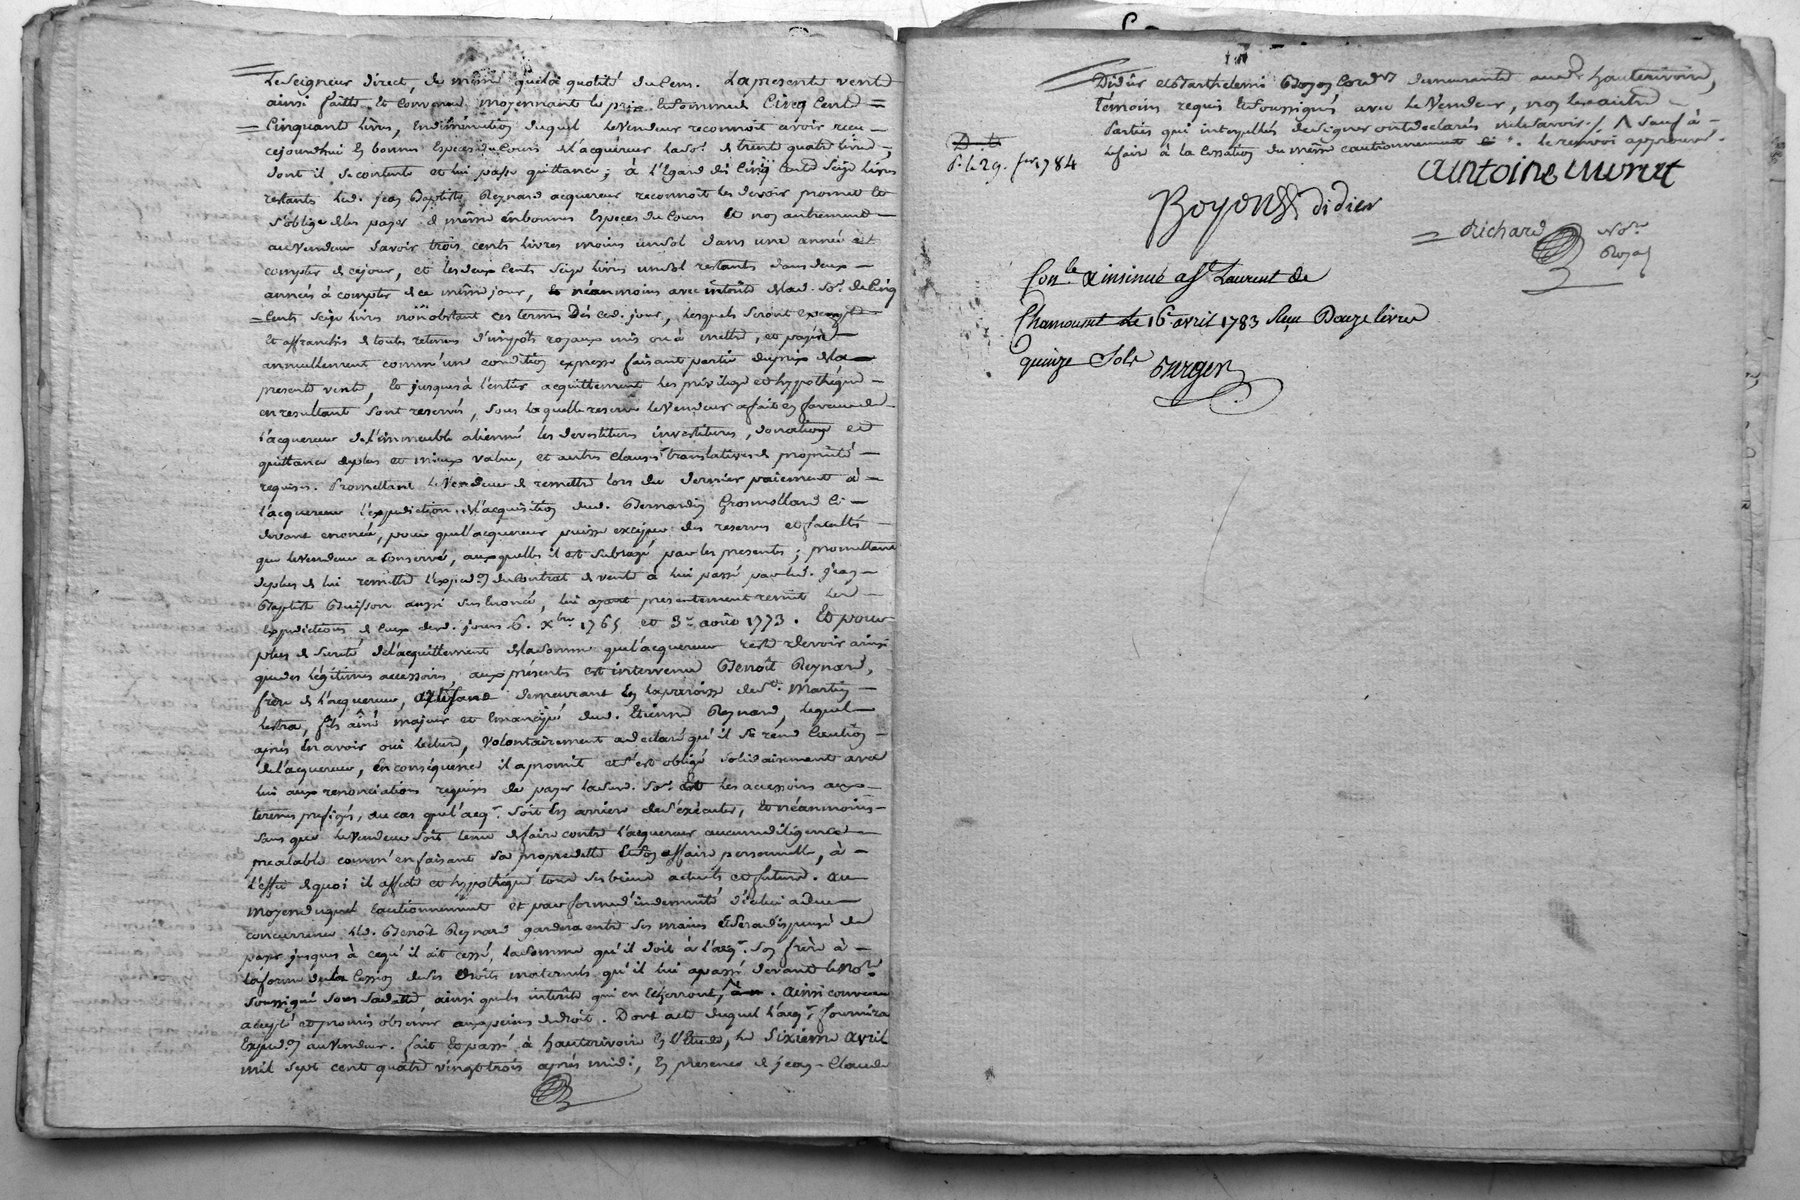 le Seigneur direct, de même que la quotité du Cens. La presente vente
ainsi faitte et Convenue moyennant le prix et Somme de Cinq Cents =
= Cinquante livres, en diminution duquel le Vendeur reconnoit avoir recu –
cejourd'hui en bonnes Especes du Cours de l'acquereur la So.e de trente quatre livres,
dont il se contente et lui passe quittance ; à l'Egard des Cinq Cents Seize livres
restants led. jean Baptiste Reynard acquereur reconnoit les devoir promet et
s'oblige de les payer de même en bonnes Especes du Cours et non autrement –
au Vendeur Savoir trois cents livres moins un Sol dans une année à
compter de cejour, et les deux Cents Seize livres un Sol restants dans deux –
années à compter de ce même jour, et néanmoins avec intérêts de lad. So.e de Cinq
= Cents Seize livres nonobstant ces termes Dès ced. jour, lesquels Seront exempts –
et affranchis de toutes retenues d'impôts royaux mis ou à mettre, et payés –
annuellement comme une condition expresse faisant partie du prix de la –
presente vente, et jusques à l'entier acquittement les privilege et hypothéque –
en resultant Sont reservés, Sous laquelle reserve le Vendeur a fait en faveur de –
l'acquereur de l'immeuble aliené les devestitures investitures, donation et
quittance de plus et mieux value, et autres clauses translatives de propriété –
requises. Promettant le Vendeur de remettre lors du dernier paiement à –
l'acquereur l'expedition de l'acquisition dud. Bernardin Grosmollard ci –
devant enoncée, pour que l'acquereur puisse exciper des reserves et facultés –
que le Vendeur a Conservé, auxquelles il est Subrogé par les presentes ; promettant
de plus de lui remettre l'Exped.on du Contrat de vente à lui passé par led. jean –
Baptiste Buisson aussi Sus Enoncé, lui ayant presentement remis les –
Expeditions de Ceux desd. jours 6. Xbre 1765 et 3e aout 1773. Et pour
plus de Sureté de l'acquittement de la Somme que l'acquereur reste devoir ainsi
que des légitimes accessoires, aux présentes est intervenu Benoît Reynard,
frère de l'acquereur, demeurant en la paroisse de St. Martin –
lestra, fils aîné majeur et Emancipé dud. Etienne Reynard, lequel –
après En avoir oui lecture, Volontairement a declaré qu'il Se rend Caution –
de l'acquereur, En conséquence il a promit et s'est obligé Solidairement avec
lui aux renonciations requises de payer lad. So.e et les accessoires aux –
termes prefigés, au cas que l'acq.r Soit En arriere de s'executer, et néanmoins –
Sans que le Vendeur Soit tenu de faire contre l'acquereur aucunes diligences –
prealable comm' en faisant Sa propre dette et Son affaire personnelle, à –
l'effet de quoi il affecte et hypothéque tous Ses biens actuels et futurs. au –
moyen duquel Cautionnement et par forme d'indemnité d'icelui à due –
concurrence led. Benoît Reynard gardera entre Ses mains et Sera dispensé de
payer jusques à ce qu'il ait cessé, la Somme qu'il doit à l'acq.r Son frère à –
la forme de la Cession de Ses Droits maternels qu'il lui a passé devant le No.re
Soussigné Sous Sa datte ainsi que les intérêts qui en Echerront, ^. ainsi convenu
accepté et promis observer aux peines de droit. Dont acte duquel l'acq.r fournira
Exped.on au Vendeur. fait et passé à hauterivoire En l'Etude, le Sixieme avril
mil Sept cent quatre vingt trois après midi, En presence de jean – Claude
Didier et Barthelemi Boyon Cord.rs demeurants aud. hauterivoire,
témoins requis et Soussignés avec le Vendeur, non les autres –
Parties qui interpellés de Signer ont declarés ne le Savoir. / ^ Sauf à –
le faire à la Cessation du même cautionnement. le renvoi approuvé.
P. le 29. fer. 1784
antoine murat
Boyon didier
= Richard No.re
Royal
Con.lé & insinué a St Laurent de
Chamousset le 16 avril 1783 Reçu Douze livres
quinze Sols